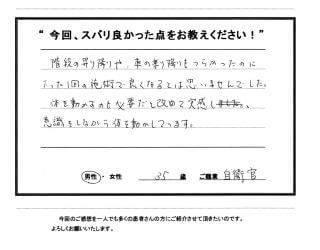 “ 今回、スバリ良かった点をお教えください！”
階段の昇り降りや、車の乗り降りもつらかったのに
たった1回の施術で良くなるとは思いませんでした。
体を動かすのも必要だと改めて実感し
意識をしながら体を動かしてます。
男性・ 女性 35 歳 ご職業 自衛官
今回のご感想を一人でも多くの患者さんの方にご紹介させて頂きたいのです。
よろしくお願いいたします。